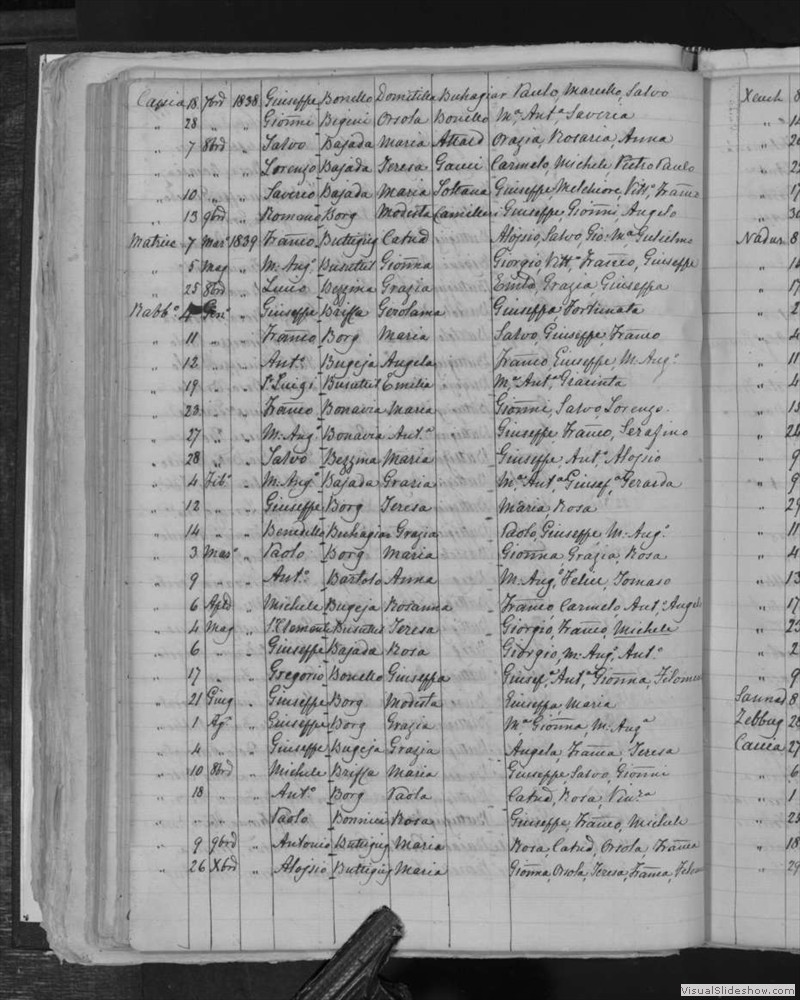 Caccia 18 7brē 1838 Giuseppe Bonello Domitilla Buhagiar Paulo, Marcello, Salvo
„ 28 „ „ Gionni Bigeni Orsola Bonello Mª Antª Saveria
„ 7 8brē „ Salvo Bajada Maria Attard Orazia, Rosaria, Anna
„ „ „ „ Lorenzo Bajada Teresa Gauci Carmelo, Michele, Pietro Paulo
„ 10 „ „ Saverio Bajada Maria Soltana Giuseppe, Melchiore, Vittª, Franco
„ 13 9brē „ Romano Borg Modesta Camilleri Giuseppe, Gionni, Angelo
Matrice 7 Marº 1839 Franco Buttigieg Catnd Alojsio, Salvo, Gio: Mª Gulielmo
„ 5 Mag „ M: Angº Busuttil Gionna Giorgio, Vittª, Franco, Giuseppe
„ 25 8brē „ Lucio Bezzina Grazia Grazia Giuseppa
Rabbº 4 Genº „ Giuseppe Briffa Gerolama Giuseppa Fortunata
„ 11 „ „ Franco Borg Maria Salvo, Giuseppe, Franco
„ 12 „ „ Antº Bugeja Angela Franco, Giuseppe, M. Angº
„ 19 „ „ Luigi Busuttil Emilia Mª Antª Giacinta
„ 23 „ „ Franco Bonavia Maria Gionni, Salvo, Lorenzo
„ 27 „ „ M. Angº Bonavia Antª Giuseppe, Franco, Serafino
„ 28 „ „ Salvo Bezzina Maria Giuseppe, Antº, Alojsio
„ 4 Febº „ M: Angº Bajada Grazia Mª Antª, Giusefª, Gerarda
„ 12 „ „ Giuseppe Borg Teresa Maria Rosa
„ 14 „ „ Benedetto Buhagiar Grazia Paolo, Giuseppe, M. Angº
„ 3 Marº „ Paolo Borg Maria Gionna, Grazia, Rosa
„ 9 „ „ Antº Bartolo Anna M. Angº, Felice, Tomaso
„ 6 Aple „ Michele Bugeja Rosanna Franco, Carmelo, Antº, Angelo
„ 4 Mag „ Clemente Busuttil Teresa Giorgio, Franco, Michele
„ 6 „ „ Giuseppe Bajada Rosa Giorgio, M. Angº, Antº
„ 17 „ „ Gregorio Bonello Giuseppa Giusefª, Antª, Gionna, Filomena
„ 21 Giug „ Giuseppe Borg Modesta Giuseppa Maria
„ 1 Agº „ Giuseppe Borg Grazia Mª Gionna, M. Angª
„ 4 „ „ Giuseppe Bugeja Grazia Angela, Franca, Teresa
„ 10 8brē „ Michele Briffa Maria Giuseppe, Salvo, Gionni
„ 18 „ „ Antº Borg Paola Catnd, Rosa, Vinzª
„ „ „ „ Paolo Bonnici Rosa Giuseppe, Franco, Michele
„ 9 9brē „ Antonio Buttigieg Maria Rosa, Catnd, Orsola, Franca
„ 26 Xbrē „ Alojsio Buttigieg Maria Gionna, Orsola, Teresa, Franca
Xeuch 8
Nadur 8
Sannat 8
Zebbug 28
Caccia 27
VisualSlideshow.com